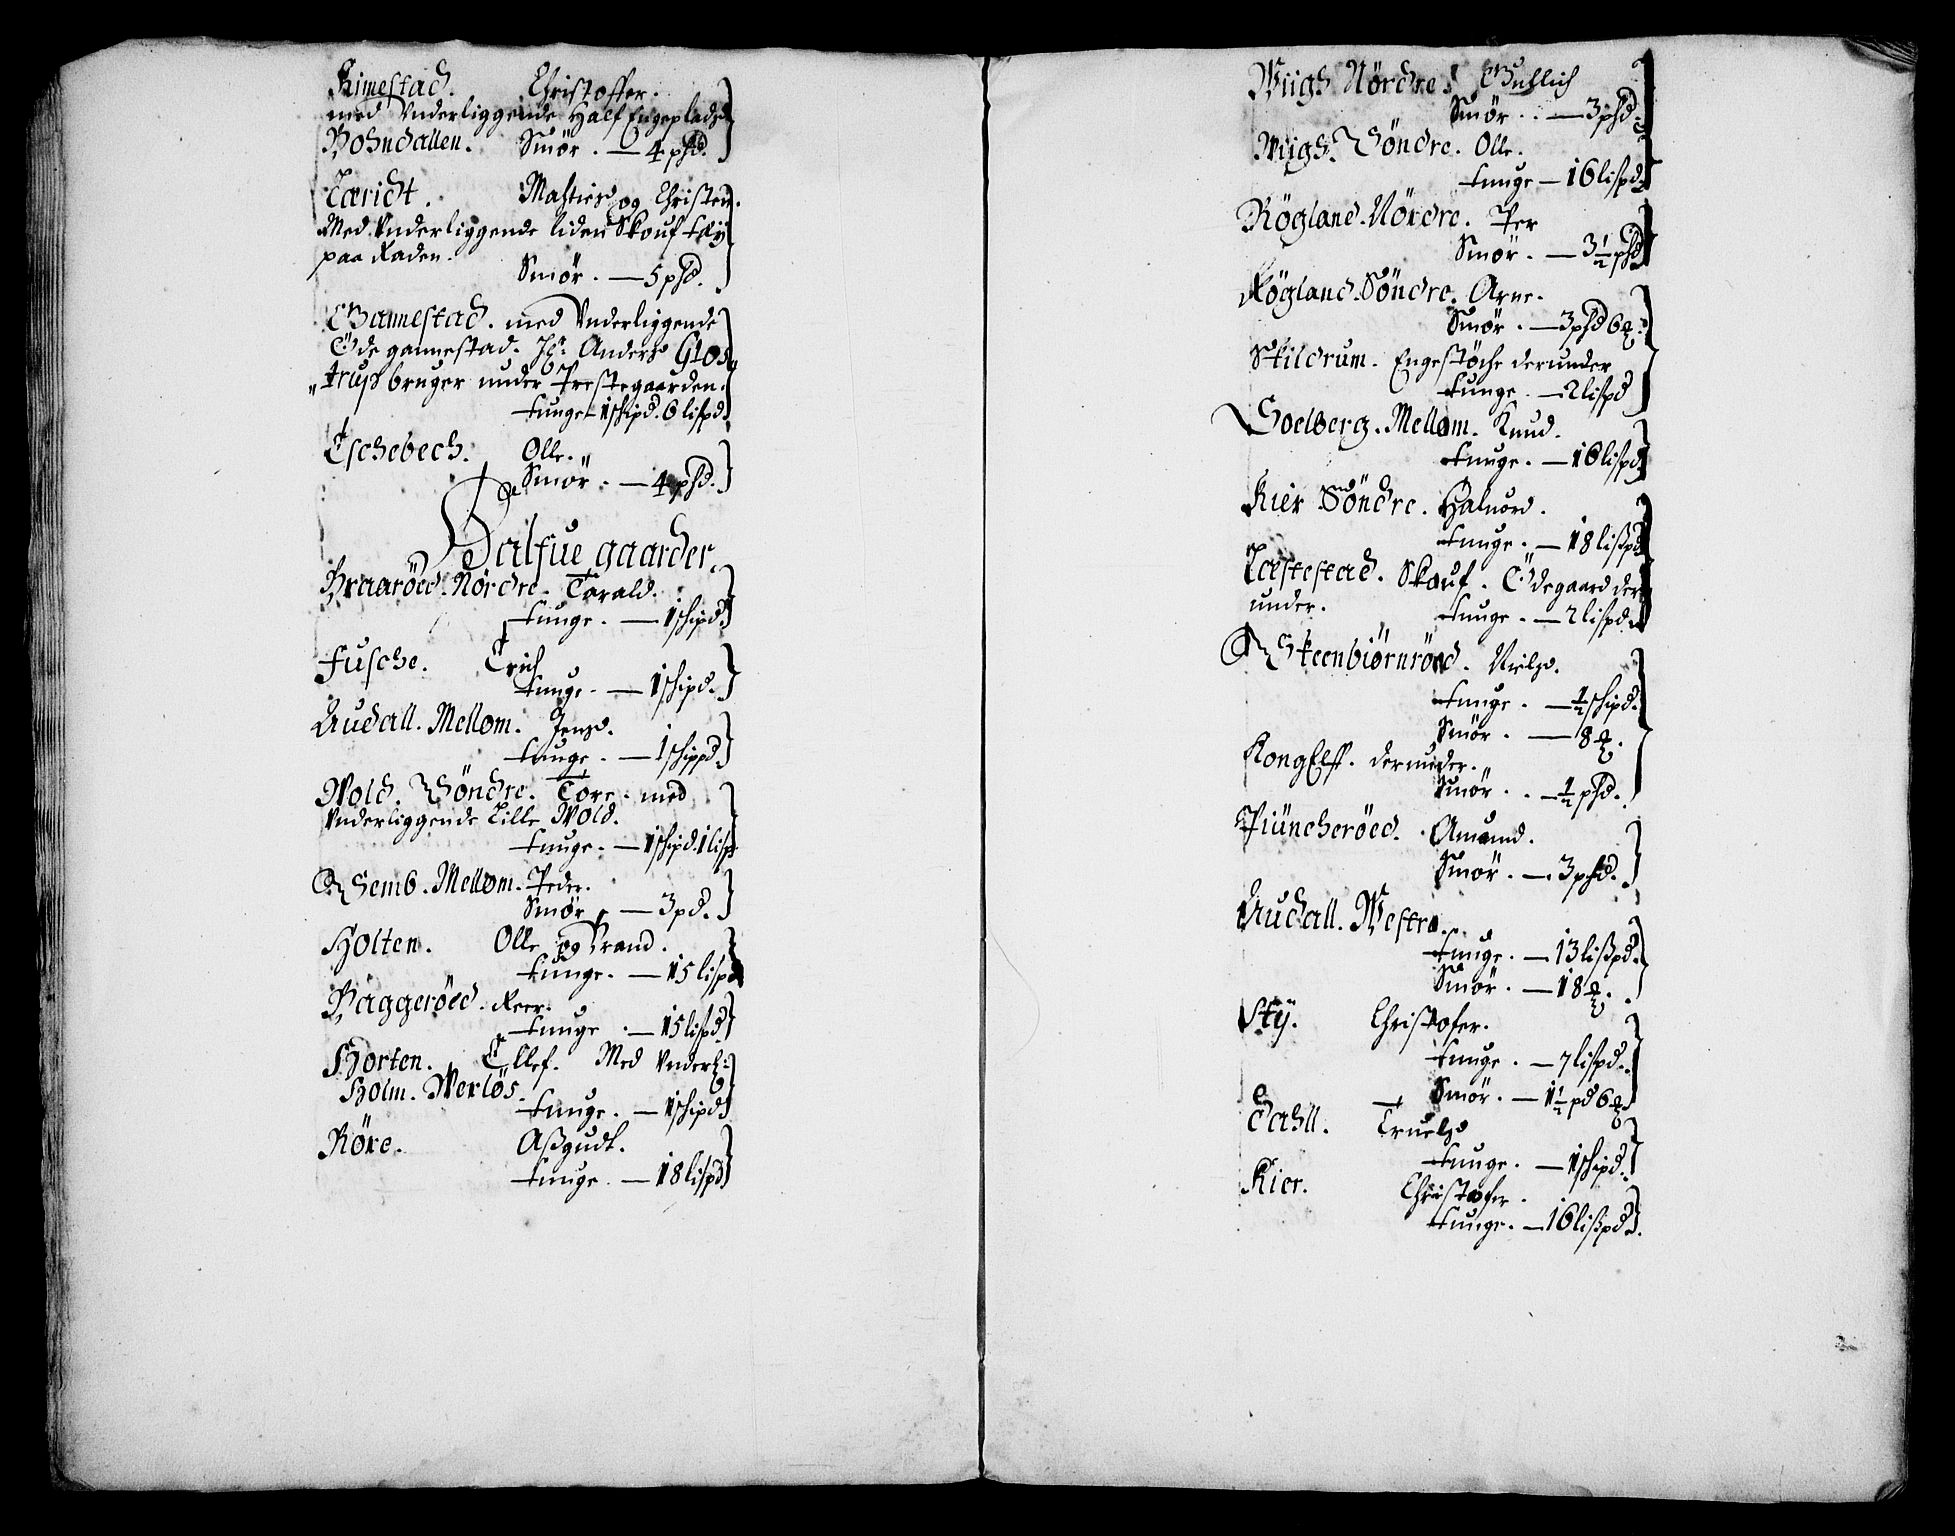 Rimestad. Christoffer.
med Vnderliggende Half Engepladz
Bohndallen. Smör. — 4 phd.
Læricht. Mathies og Christen.
Med Vnderliggende liden Skouf tÿ
paa Raden.
Smör. — 5 phd.
Gannestad. med Vnderliggende
Öde gannestad. Hr. Anders Glos
trup bruger under Prestegaarden.
tunge — 1 schipd. 6 lispd.
Eschebech. Olle.
Smör. — 4 phd.
Halfue gaarder.
Braaröed. Nördre. Torald.
tunge. — 1 schipd.
Fusche. Erich
tunge. — 1 schipd.
Audall. Mellom. Jens.
tunge. — 1 schippd.
Wold. Söndre. Tore. med
Vnderliggende Lille Wold.
tunge. — 1 schipd. 1 lisp
Semb. Mellom. Peder.
Smör. — 3 pd.
Holten. Olle og Trand.
tunge. — 15 lispd
Baggeröed. Reer.
tunge. — 15 lispd
Horten. Ellef. Med Vnderl:
Holm. Werløs.
tunge. — 1 schipd
Röre. Aßgudt.
tunge. — 18 lispd
Wiigh Nördre. Gulich
Smör. — 3 phd.
Wiigh. Söndre. Olle.
tunge — 16 lispd.
Rögland. Nördre. Per
Smör. — 3 1/2 phd
Rögland. Söndre. Arne.
Smör. — 3 phd 6 ℔.
Skildrum. Engestöche derunder
tunge. — 2 lispd
Soelberg. Mellom. Knud.
tunge. — 16 lispd
Kier Söndre. Haluord.
tunge. — 18 lißpd
Læstestad. Skouf. Ödegaard der
under. tunge. — 2 lispd
Steenbiörnröed. Niels.
tunge. — 1/2 schipd.
Smör. — 8 ℔.
KongElff. derunder.
Smör. — 1/2 phd.
Püncheröed. Amund.
Smör. — 3 phd.
Audall. Westre.
tunge. — 13 lißpd.
Smör. — 18 ℔.
Stÿ. Christofer.
tunge. — 7 lispd.
Smör. — 1 1/2 pd 6 ℔.
Dahll. Truels
tunge. — 1 schipd.
Kier. Christofer.
tunge. — 16 lißpd.